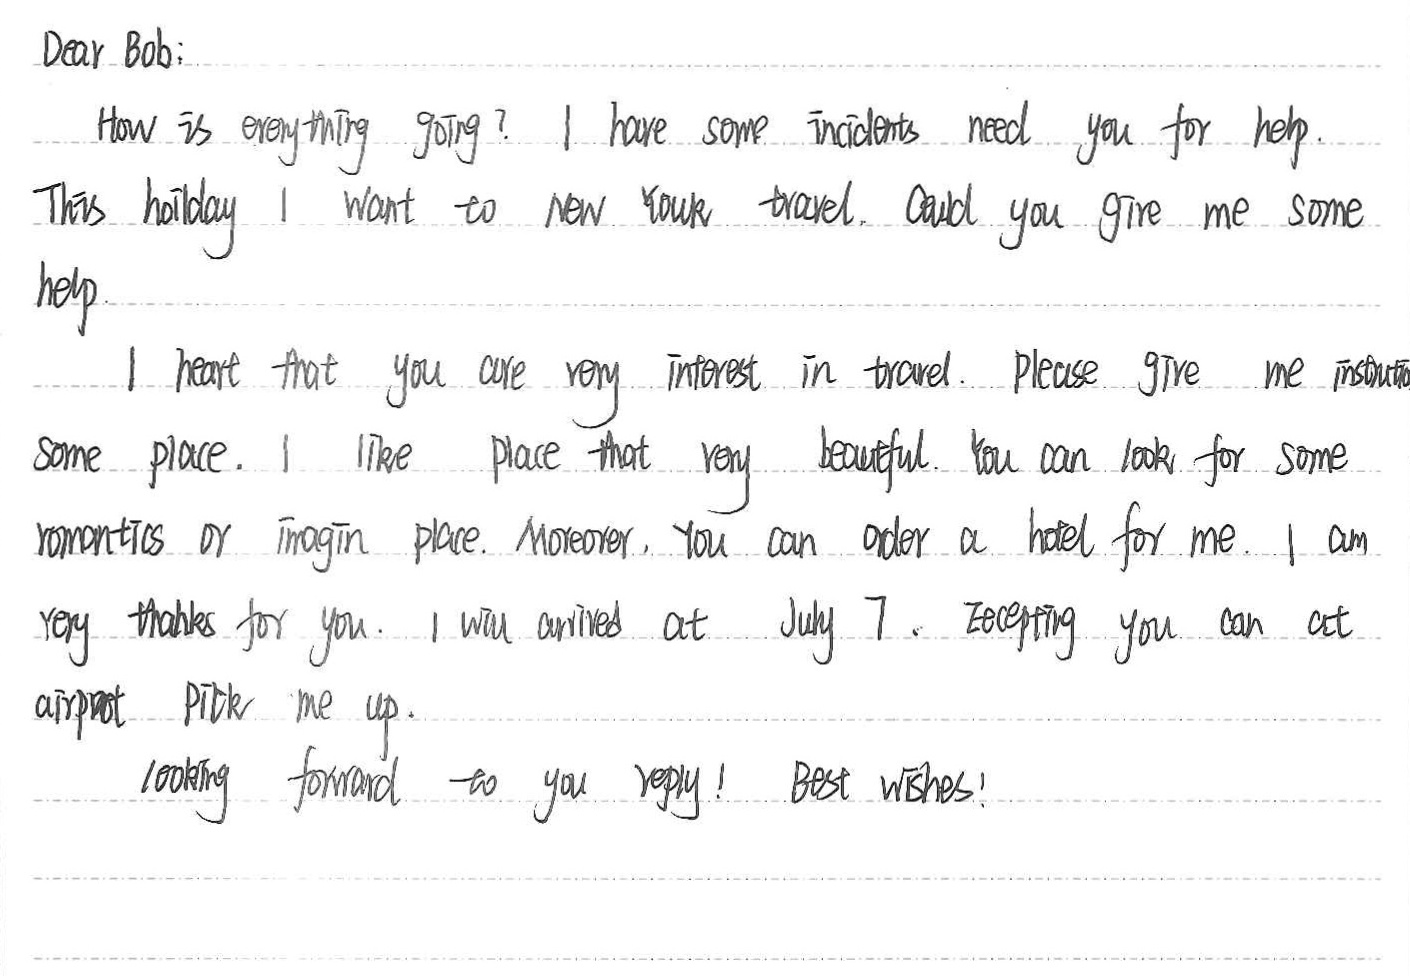 Dear Bob:
How is everything going? I have some incidents need you for help.
This hoilday I want to New Youk travel. Could you give me some
help.
I heart that you are very interest in travel. Please give me
some place. I like place that very beautful. You can look for some
romantics or imagin place. Moreover, You can order a hotel for me. I am
very thanks for you. I will arrived at July 7. you can at
pick me up.
looking forward to you reply! Best wishes!